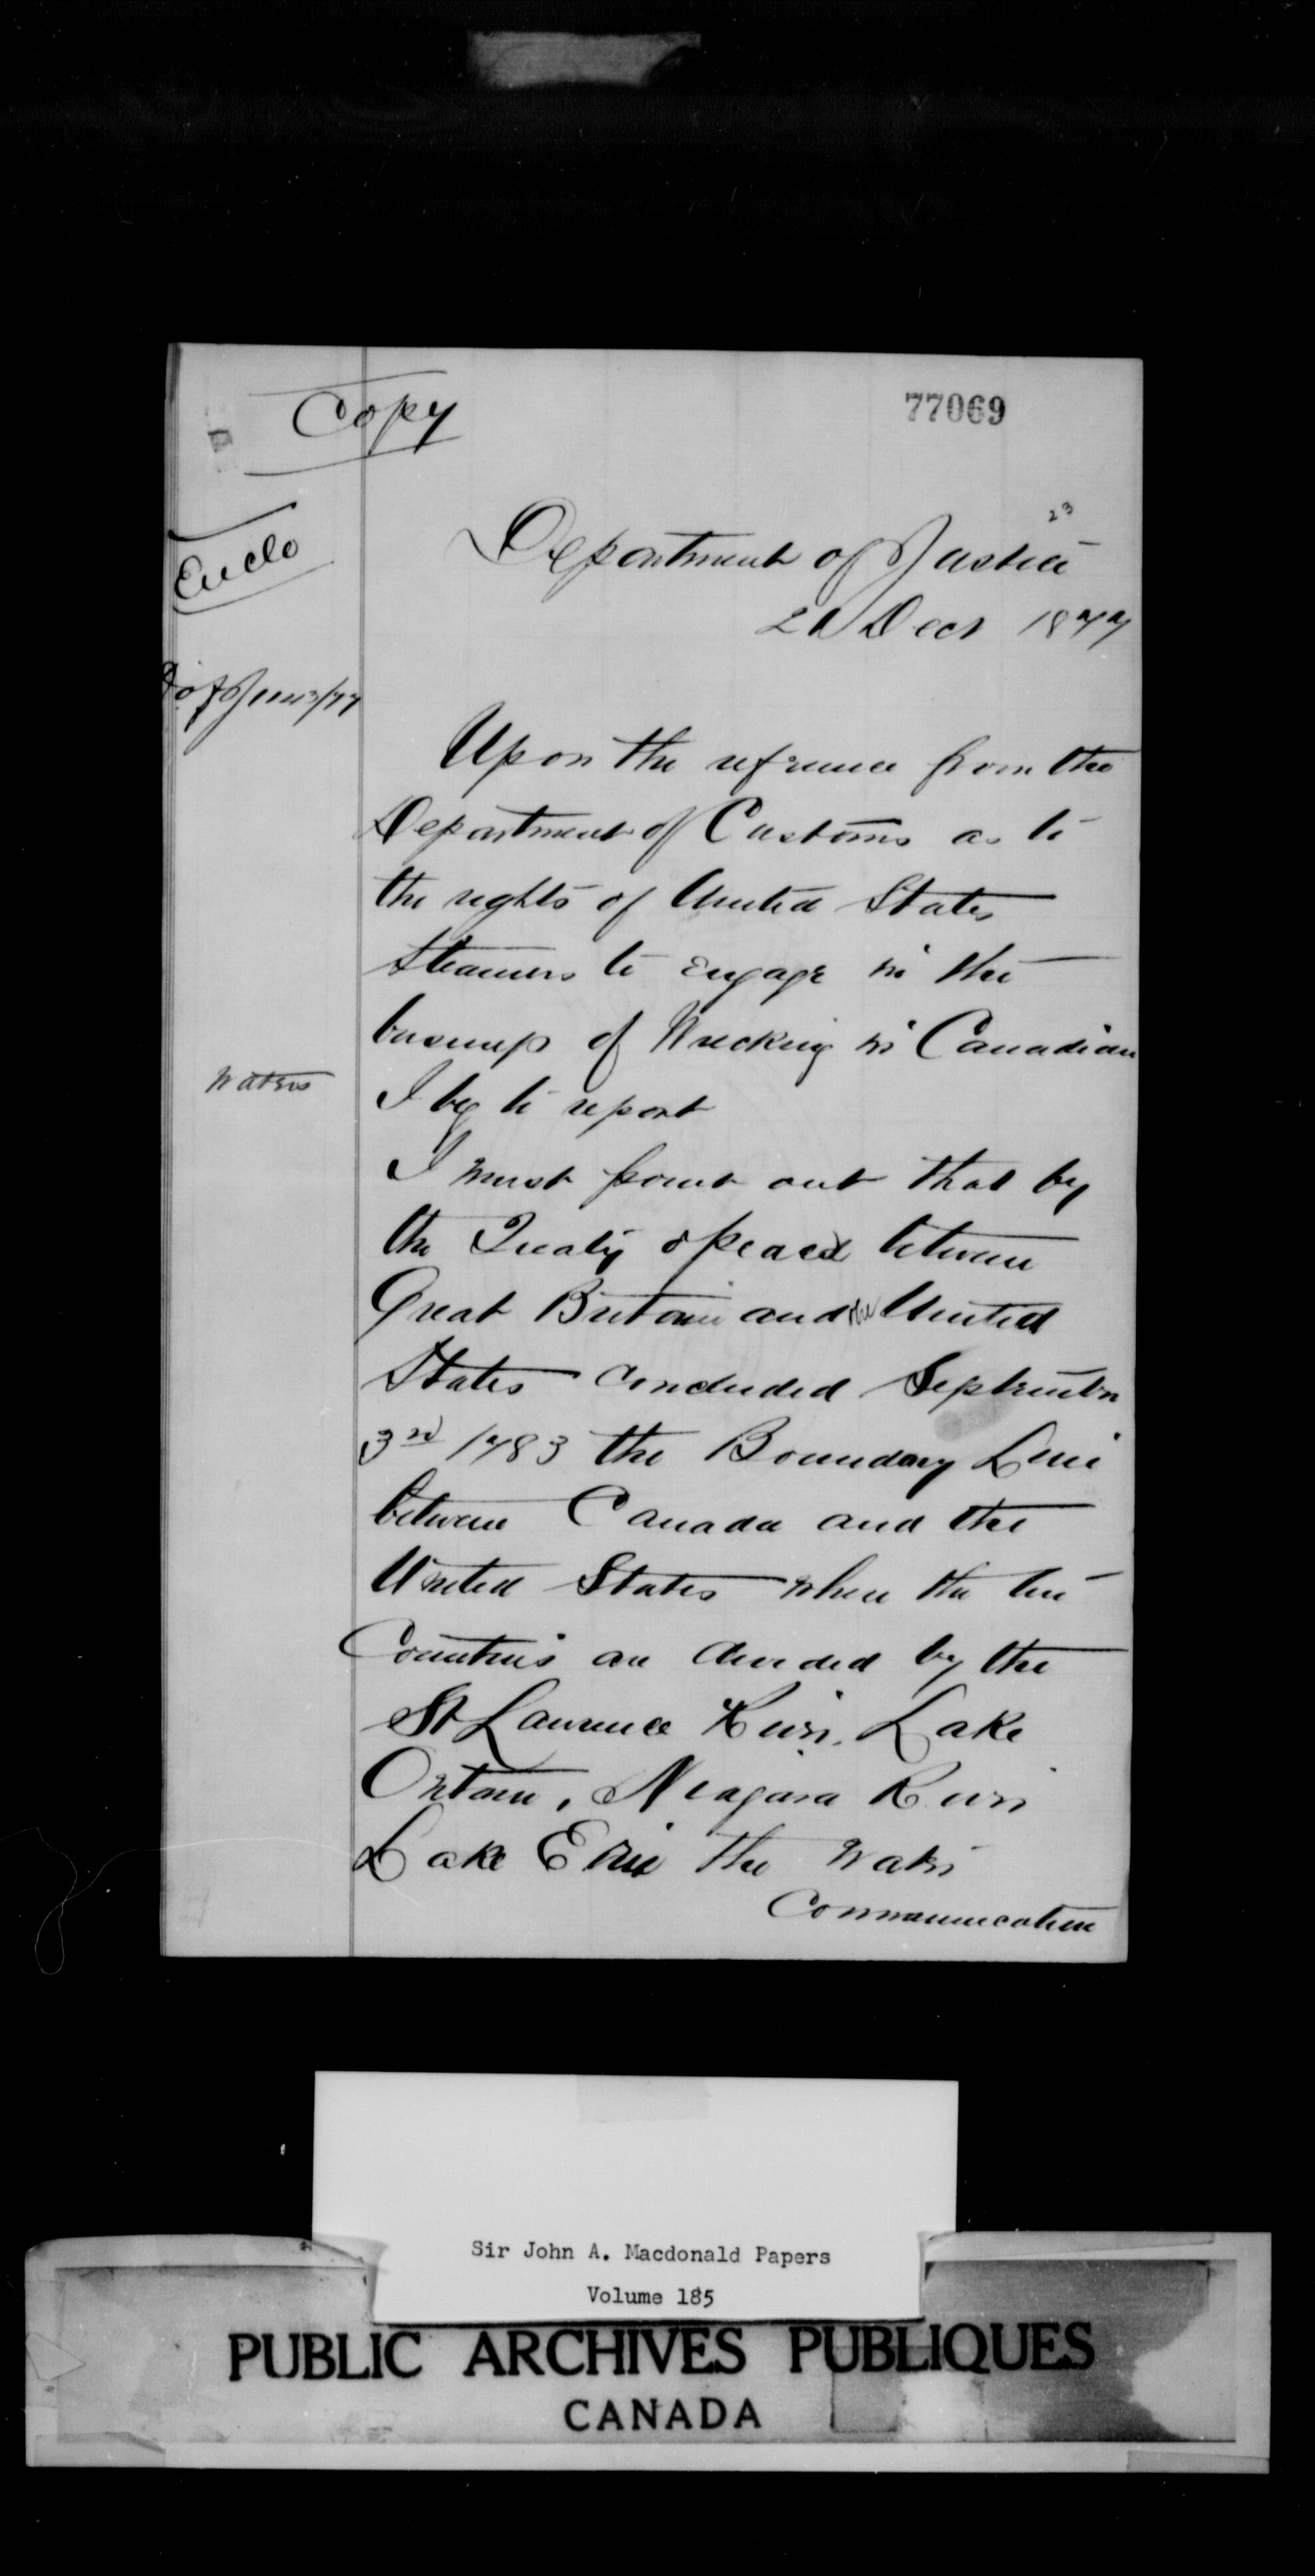 Copy
77069
Enclo
23
Department of Justice
21 Decr 1877
Upon the refrence from the
Department of Customs as to
the rights of United States
Steamers to engage in the
business of Wrecking in Canadian
waters
I beg to report
I must point out that by
the Treaty of peace between
Great Britain and the United
States concluded September
3rd 1783 the Boundary Line
between Canada and the
United States when the two
Countries are divided by the
St Lawrence River, Lake
Ontario, Niagara River
Lake Erie the water
Communication
Sir John A. Macdonald Papers
Volume 185
PUBLIC ARCHIVES PUBLIQUES
CANADA